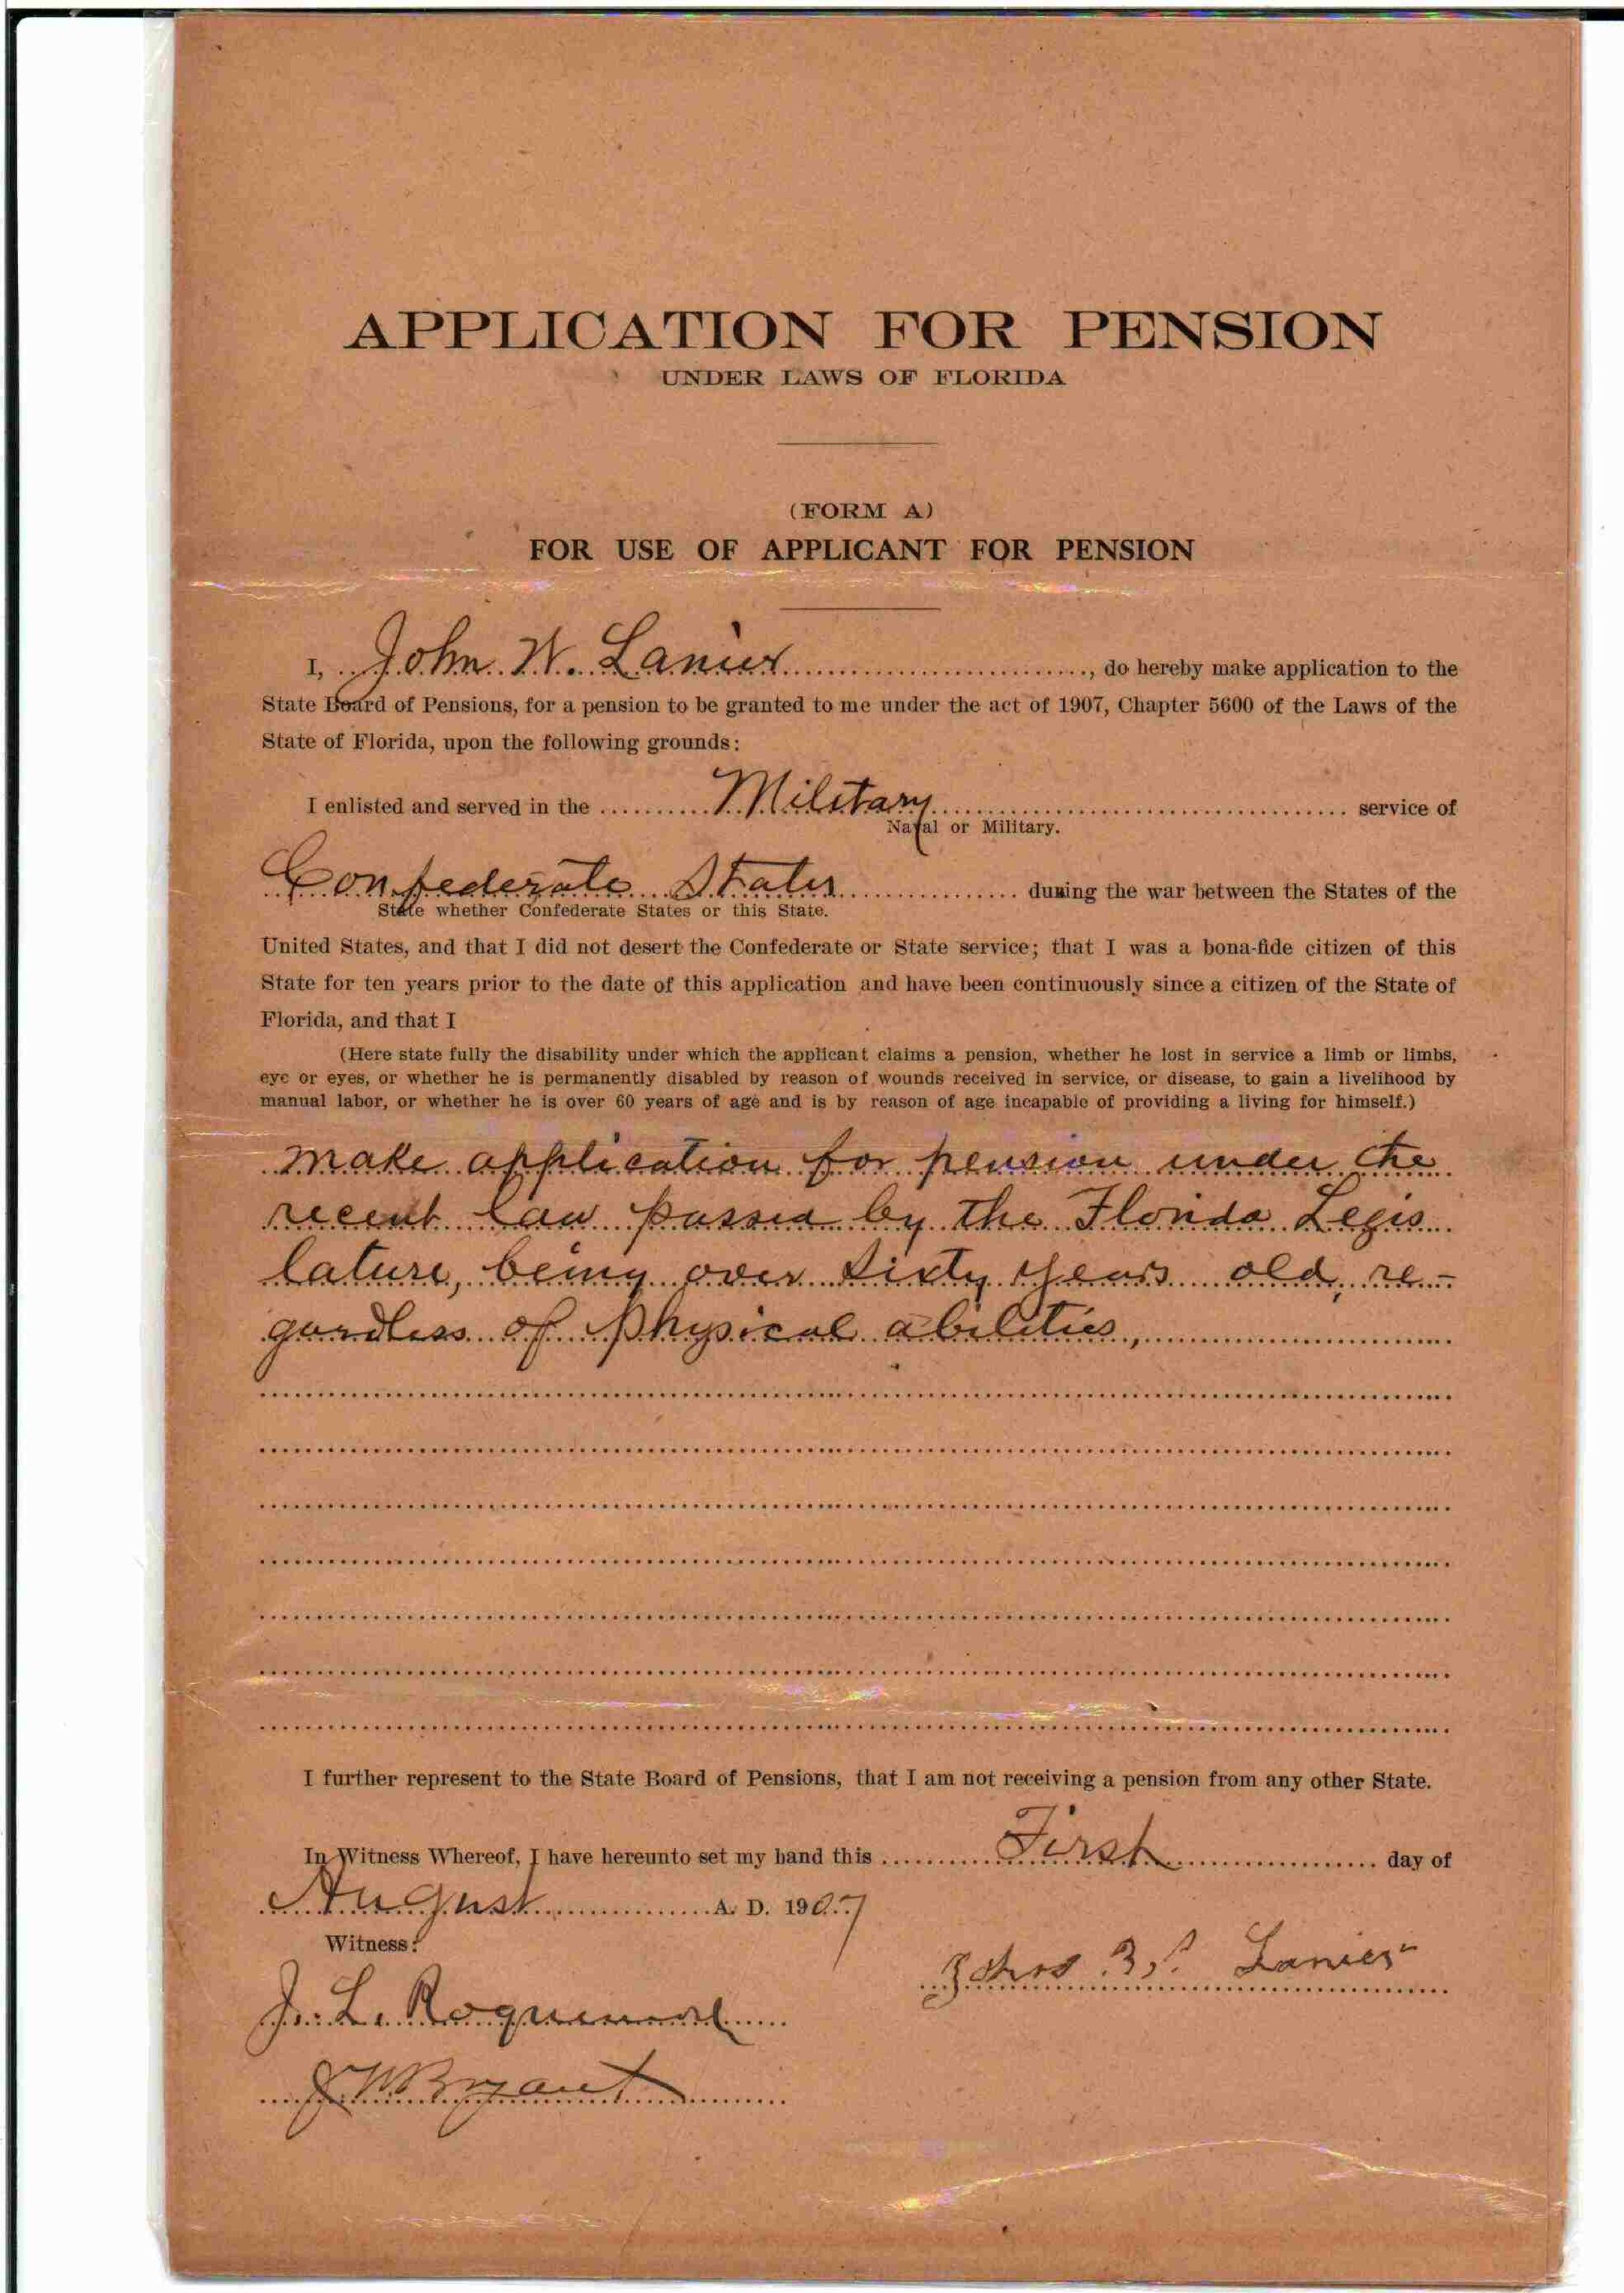 APPLICATION FOR PENSION
UNDER LAWS OF FLORIDA
(FORM A)
FOR USE OF APPLICANT FOR PENSION
I, John W. Lanier, do hereby make application to the
State Board of Pensions, for a pension to be granted to me under the act of 1907, Chapter 5600 of the Laws of the
State of Florida, upon the following grounds:
I enlisted and served in the Military service of
Naval or Military.
Confederate States during the war between the States of the
State whether Confederate States or this State.
United States, and that I did not desert the Confederate or State service; that I was a bona-fide citizen of this
State for ten years prior to the date of this application and have been continuously since a citizen of the State of
Florida, and that I
(Here state fully the disability under which the applicant claims a pension, whether he lost in service a limb or limbs,
eye or eyes, or whether he is permanently disabled by reason of wounds received in service, or disease, to gain a livelihood by
manual labor, or whether he is over 60 years of age and is by reason of age incapable of providing a living for himself.)
make application for pension under the
recent law passed by the Florida Legis
lature, being over sixty years old, re-
gardless of physical abilities,
I further represent to the State Board of Pensions, that I am not receiving a pension from any other State.
In Witness Whereof, I have hereunto set my hand this First day of
August A. D. 1907
Witness:
Lanier
J. L. Roquemore
J W Bryant